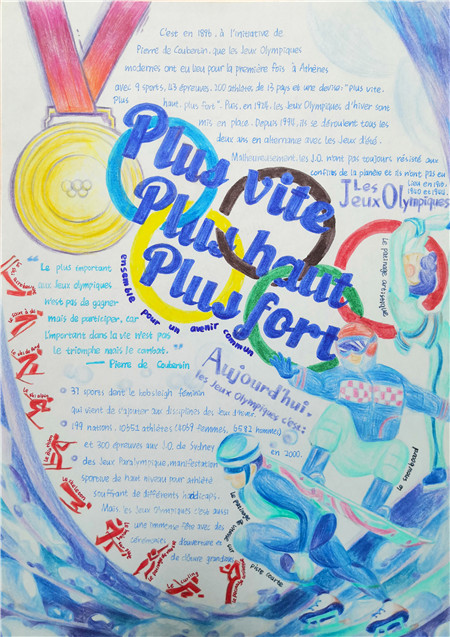 C'est en 1896, à l'initiative de
Pierre de Coubertin, que les Jeux Olympiques
modernes ont eu lieu pour la première fois à Athènes
avec 9 sports, 43 épreuves, 200 athlètes de 13 pays et une devise: "plus vite,
Plus haut, plus fort". Puis, en 1924, les Jeux Olympiques d'hiver sont
mis en place. Depuis 1994, ils se déroulent tous les
deux ans en alternance avec les Jeux d'été.
Malheureusement, les J.O. n'ont pas toujours résisté aux
conflits de la planète et ils n'ont pas eu
lieu en
1940 et
Les
Jeux Olympiques
Plus vite
Plus haut
Plus fort
ensemble pour un avenir commun
Le patinage artistique
"Le plus important
aux Jeux olympiques
n'est pas de gagner
mais de participer, car
l'important dans la vie n'est pas
le triomphe mais le combat."
— Pierre de Coubertin
Aujourd'hui,
les Jeux Olympiques c'est:
37 sports dont le bobsleigh féminin
qui vient de s'ajouter aux disciplines des Jeux d'hiver.
199 nations, 10651 athlètes (4069 femmes, 6582 hommes)
et 300 épreuves aux J.O. de Sydney
en 2000.
des Jeux Paralympique, manifestation
sportive de haut niveau pour athlète
souffrant de différents handicaps.
Mais, les Jeux Olympiques c'est aussi
une immense fête avec des
cérémonies d'ouverture et
de clôture grandioses
Le snowboard
Le patinage de vitesse sur piste courte
Le ski alpin
Le curling